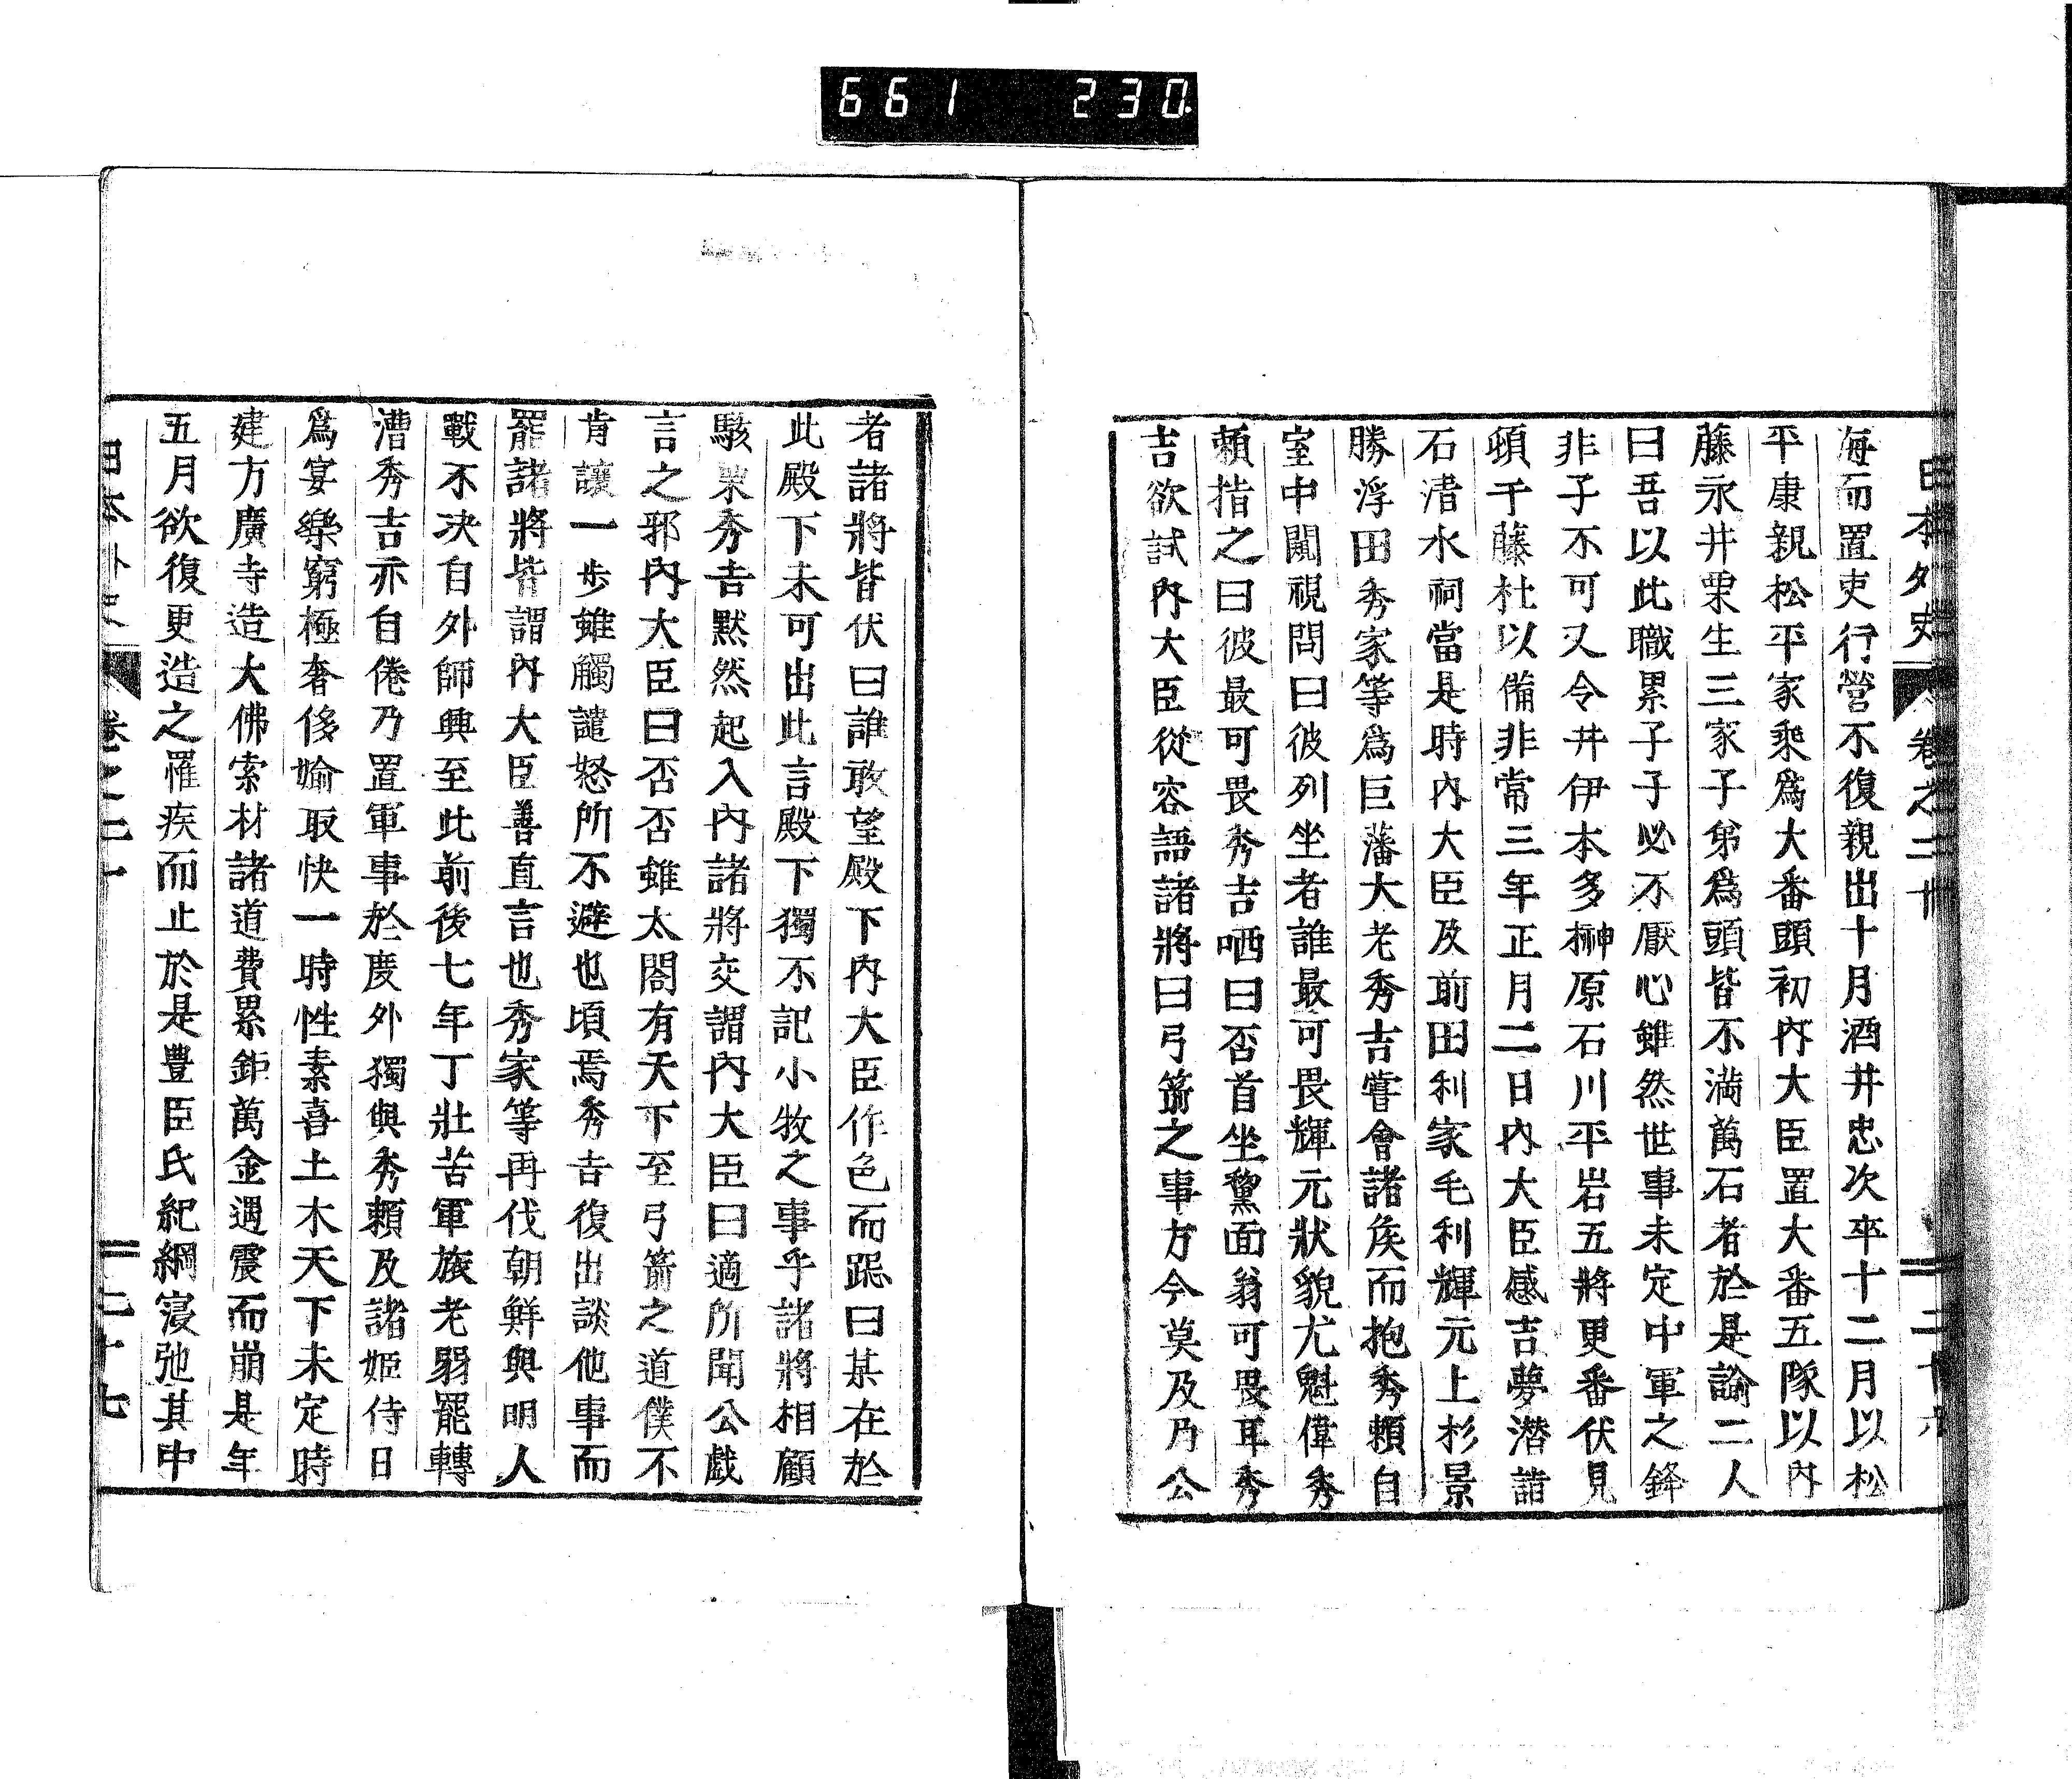 661 230
日本外史 卷之二十
海而置吏行營不復親出十月酒井忠次卒十二月以松
平康親松平家乘爲大番頭初內大臣置大番五隊以內
藤永井栗生三家子弟爲頭皆不滿萬石者於是諭二人
曰吾以此職累子子必不厭心雖然世事未定中軍之鋒
非子不可又令井伊本多榊原石川平岩五將更番伏見
頓千藤杜以備非常三年正月二日內大臣感吉夢潛詣
石清水祠當是時內大臣及前田利家毛利輝元上杉景
勝浮田秀家等爲巨藩大老秀吉嘗會諸侯而抱秀賴自
室中闖視問曰彼列坐者誰最可畏輝元狀貌尤魁偉秀
賴指之曰彼最可畏秀吉哂曰否首坐黧面翁可畏耳秀
吉欲試內大臣從容語諸將曰弓箭之事方今莫及乃公
者諸將皆伏曰誰敢望殿下內大臣作色而跽曰某在於
此殿下未可出此言殿下獨不記小牧之事乎諸將相顧
駭栗秀吉默然起入內諸將交謂內大臣曰適所聞公戲
言之邪內大臣曰否否雖太閤有天下至弓箭之道僕不
肯讓一步雖觸譴怒所不避也頃焉秀吉復出談他事而
罷諸將皆謂內大臣善直言也秀家等再伐朝鮮與明人
戰不決自外師興至此前後七年丁壯苦軍旅老弱罷轉
漕秀吉亦自倦乃置軍事於度外獨與秀賴及諸姬侍日
爲宴樂窮極奢侈婾取快一時性素喜土木天下未定時
建方廣寺造大佛索材諸道費累鉅萬金遇震而崩是年
五月欲復更造之罹疾而止於是豐臣氏紀綱寖弛其中
日本外史 卷之二十 二十七